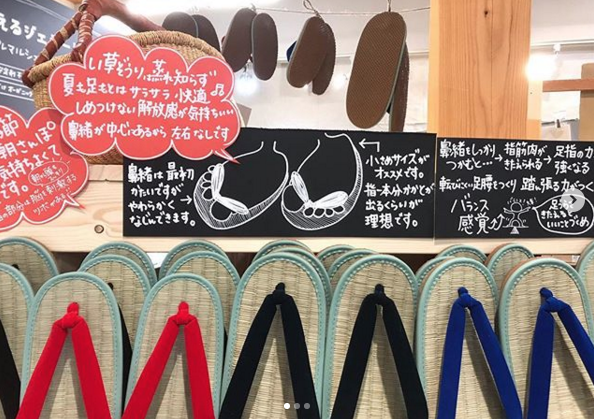 い草ぞうり、蒸れ知らず
夏も足もとはサラサラ快適♪
しめつけない解放感が気持ちいい
鼻緒が中心にあるから左右なしです
鼻緒は最初
かたいですが
やわらかく
なじんできます。
小さめサイズが
オススメです。
指一本分かかとが
出るくらいが
理想です。
鼻緒をしっかり
つかむと…
→指筋肉が
きたえられる
→足指の力
強くなる
転びにくい足腰をつくり 踏ん張る力がつく
バランス
感覚
足うらを
きたえると
いいことづくめ
気持ちよくて